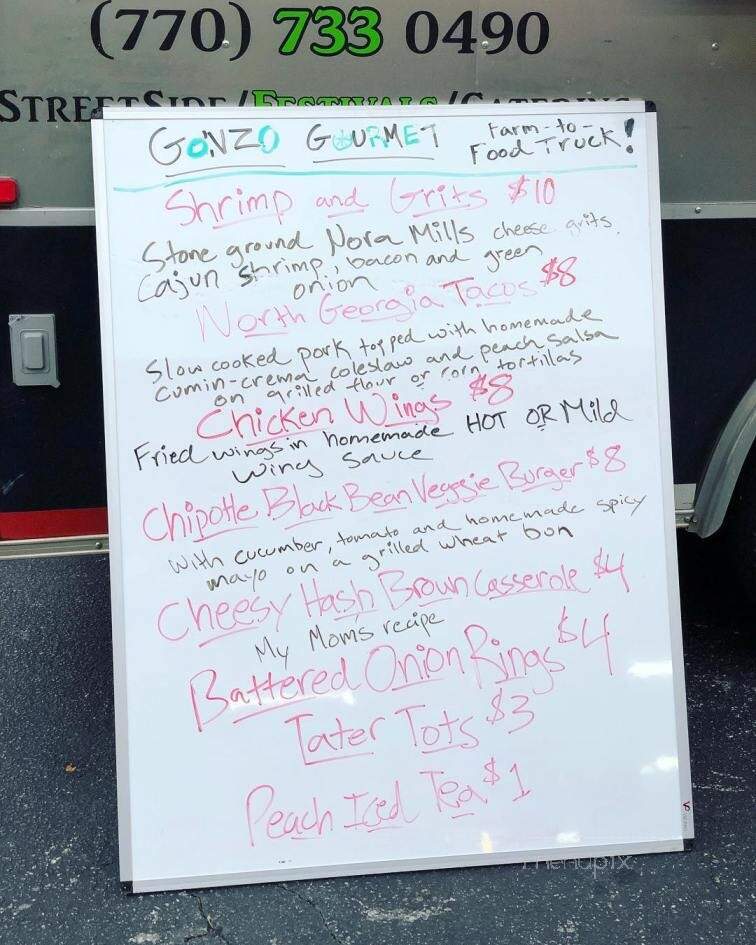 (770) 733 0490
STREETSIDE/FESTIVALS/CATERING
GONZO GOURMET Farm-to-
Food Truck!
Shrimp and Grits $10
Stone ground Nora Mills cheese grits,
Cajun shrimp, bacon and green
onion
North Georgia Tacos $8
Slow cooked pork topped with homemade
cumin-crema coleslaw and peach salsa
on grilled flour or corn tortillas
Chicken Wings $8
Fried wings in homemade HOT OR Mild
wing sauce
Chipotle Black Bean Veggie Burger $8
with cucumber, tomato and homemade spicy
mayo on a grilled wheat bun
Cheesy Hash Brown Casserole $4
My Moms recipe
Battered Onion Rings $4
Tater Tots $3
Peach Iced Tea $1
menupix